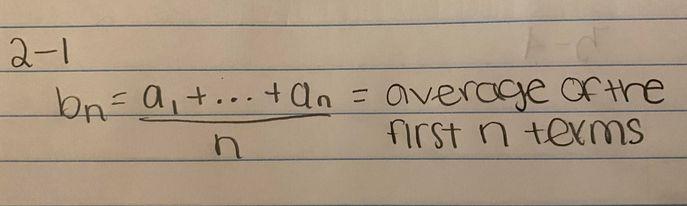 2-1
bn = a1 + ... + an / n = average of the
first n terms